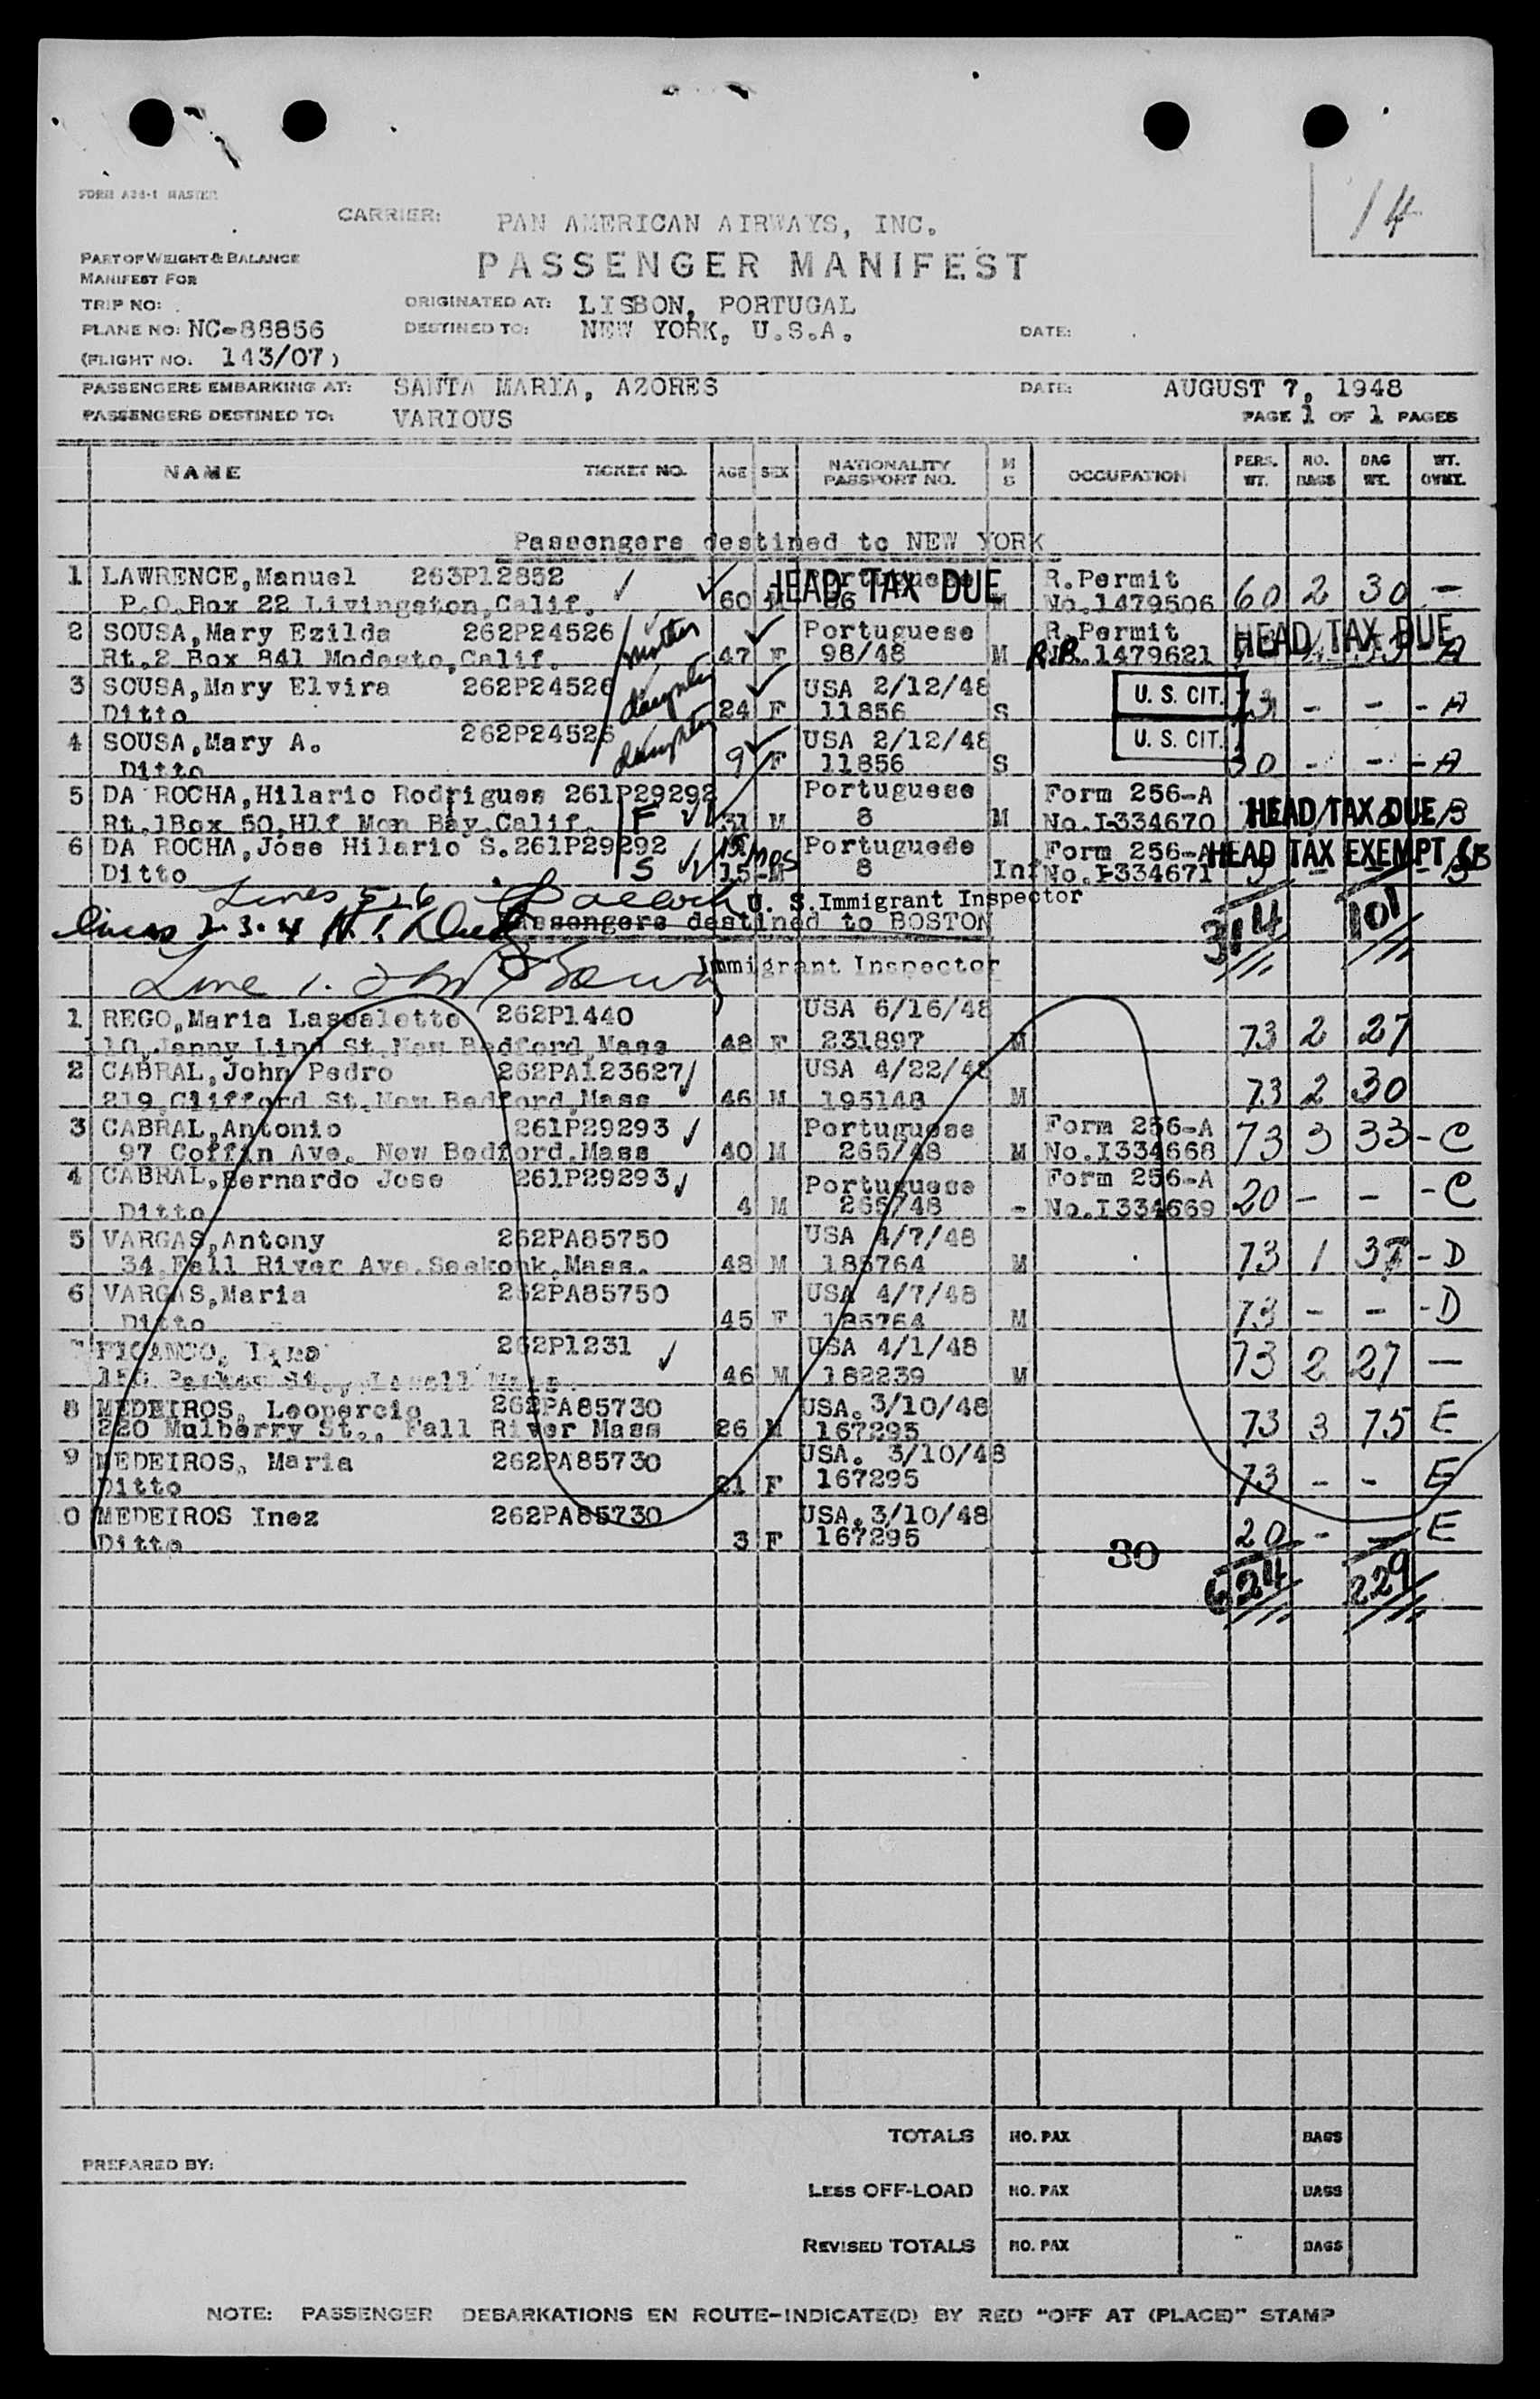 FORM A38-1 MASTER
14
CARRIER: PAN AMERICAN AIRWAYS, INC.
PART OF WEIGHT & BALANCE
MANIFEST FOR
PASSENGER MANIFEST
TRIP NO:
ORIGINATED AT: LISBON, PORTUGAL
PLANE NO: NC-88856
DESTINED TO: NEW YORK, U.S.A.
DATE:
(FLIGHT NO. 143/07)
PASSENGERS EMBARKING AT: SANTA MARIA, AZORES DATE: AUGUST 7, 1948
PASSENGERS DESTINED TO: VARIOUS PAGE 1 OF 1 PAGES
NAME TICKET NO. AGE SEX NATIONALITY PASSPORT NO. M S OCCUPATION PERS. WT. NO. BAGS BAG WT. WT. OVWT.
Passengers destined to NEW YORK
1 LAWRENCE,Manuel 263P12852 Portuguese R.Permit
P.O.Box 22 Livingston,Calif. 60 M 86 M No.1479506 60 2 30 -
HEAD TAX DUE
2 SOUSA,Mary Ezilda 262P24526 mother Portuguese R.Permit
Rt.2 Box 841 Modesto,Calif. 47 F 98/48 M R.P. No.1479621 A
HEAD TAX DUE
3 SOUSA,Mary Elvira 262P24526 daughter USA 2/12/48 U. S. CIT.
Ditto 24 F 11856 S 73 - - - A
4 SOUSA,Mary A. 262P24526 daughter USA 2/12/48 U. S. CIT.
Ditto 9 F 11856 S 30 - - - A
5 DA ROCHA,Hilario Rodrigues 261P29292 Portuguese Form 256-A
Rt.1Box 50,Hlf Mon Bay,Calif. F 31 M 8 M No.I-334670 HEAD TAX DUE B
6 DA ROCHA,Jose Hilario S.261P29292 Portuguese Form 256-A
Ditto S 15 mos M 8 Inf No.I-334671 HEAD TAX EXEMPT B
Lines 5 & 6 U. S. Immigrant Inspector
314 101
lines 2-3-4 H.T. Due Passengers destined to BOSTON
Line 1. Immigrant Inspector
1 REGO,Maria Lassalette 262P1440 USA 6/16/48
10,Jenny Lind St.New Bedford,Mass 48 F 231897 M 73 2 27
2 CABRAL,John Pedro 262PA123627 USA 4/22/48
219,Clifford St.New Bedford,Mass 46 M 195148 M 73 2 30
3 CABRAL,Antonio 261P29293 Portuguese Form 256-A
97 Coffin Ave. New Bedford,Mass 40 M 265/48 M No.I334668 73 3 33 - C
4 CABRAL,Bernardo Jose 261P29293 Portuguese Form 256-A
Ditto 4 M 265/48 - No.I334669 20 - - - C
5 VARGAS,Antony 262PA85750 USA 4/7/48
34 Fall River Ave.Seekonk,Mass. 48 M 185764 M 73 1 37 - D
6 VARGAS,Maria 262PA85750 USA 4/7/48
Ditto 45 F 185764 M 73 - - - D
262P1231 USA 4/1/48
Lowell Mass. 46 M 182239 M 73 2 27 -
8 MEDEIROS, Leopercio 262PA85730 USA. 3/10/48
220 Mulberry St., Fall River Mass 26 M 167295 73 3 75 E
9 MEDEIROS, Maria 262PA85730 USA. 3/10/48
Ditto 21 F 167295 73 - - E
0 MEDEIROS Inez 262PA85730 USA. 3/10/48
Ditto 3 F 167295 20 - - E
30
624 229
TOTALS NO. PAX BAGS
PREPARED BY:
LESS OFF-LOAD NO. PAX BAGS
REVISED TOTALS NO. PAX BAGS
NOTE: PASSENGER DEBARKATIONS EN ROUTE-INDICATE(D) BY RED "OFF AT (PLACE)" STAMP